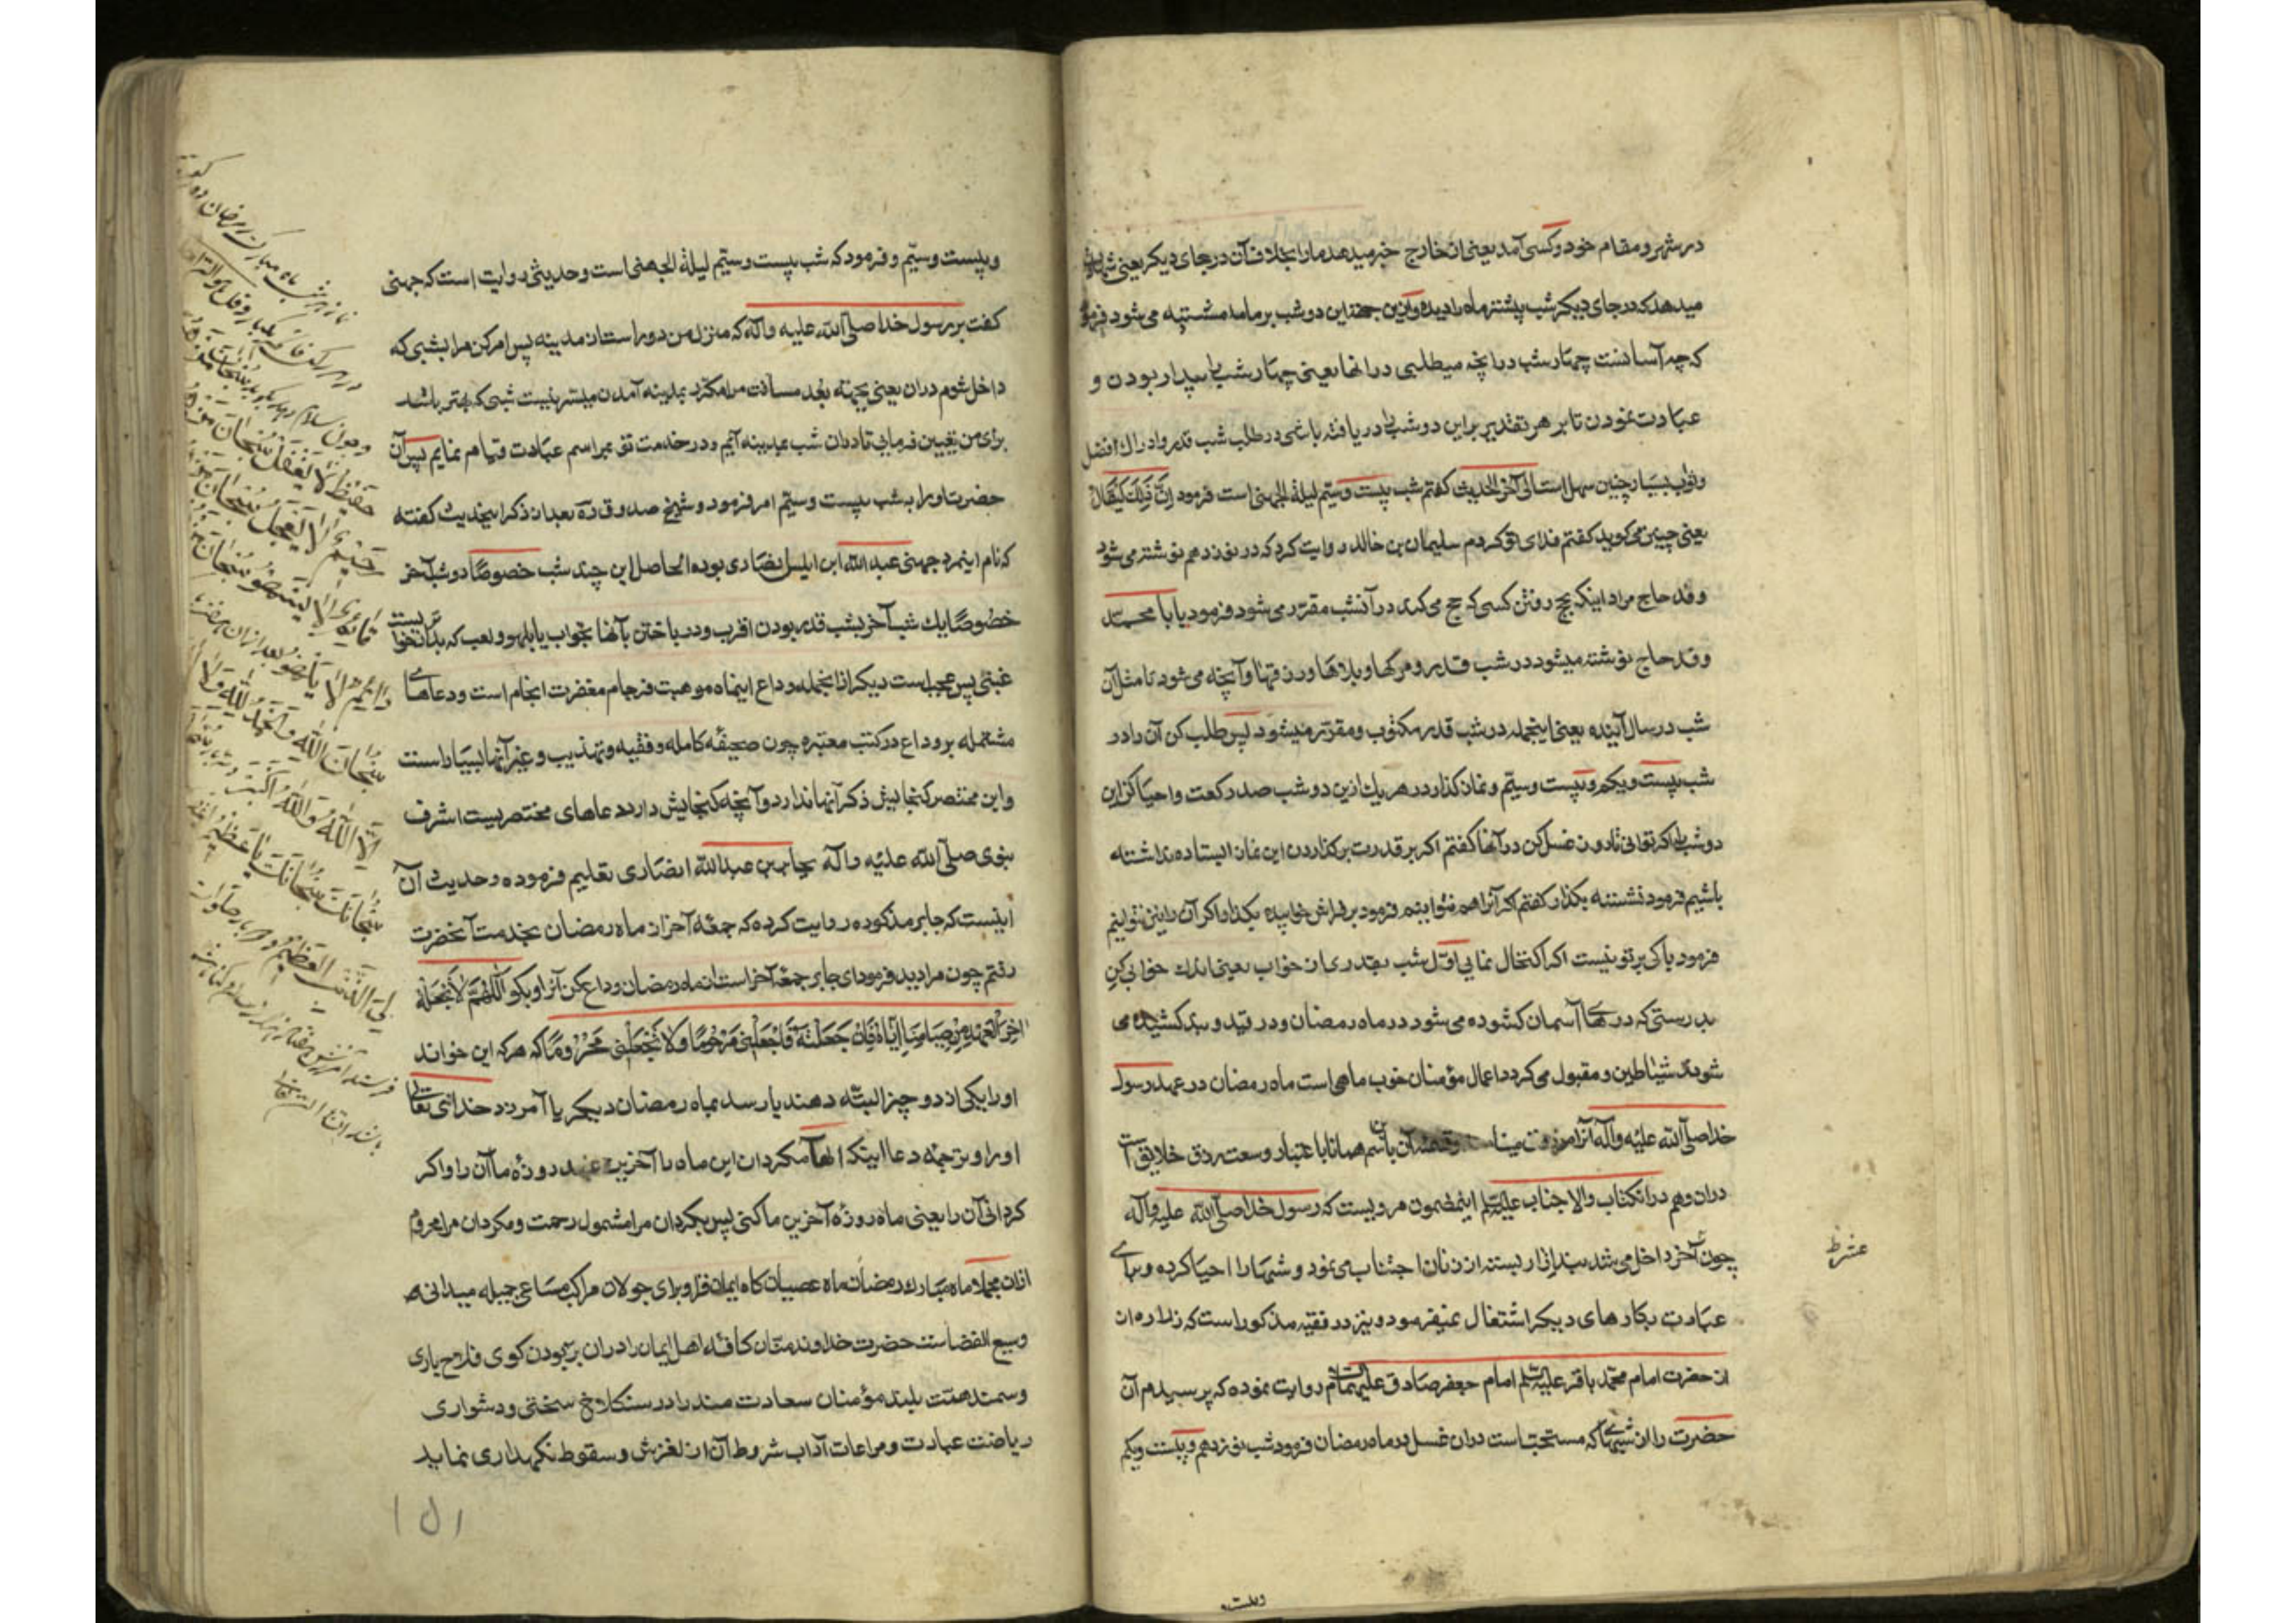 در شهر و مقام خود و کسی آمد یعنی از خارج خبر میدهد ما را بخلاف آن در جای دیکر یعنی
میدهد که در جای دیکر شب پیشتر ماه را دیده و ازین جهة این دو شب بر ما مشتبه می شود فرمود
که چه آسانست چهار شب در آنچه میطلبی در آنها یعنی چهار شب را بیدار بودن و
عبادت نمودن تا بر هر تقدیر براین دو شب را دریافته باشی در طلب شب قدر و ادراک افضل
و ثواب بسیار چنین سهل است الی آخر الحدیث کفتم شب بیست و سیّم لیلة الجهنی است فرمود اِنَّ ذٰلِکَ لَیُقالُ
یعنی چنین می کوید کفتم فدای تو کردم سلیمان بن خالد روایت کرد که در نوزدهم نوشته می شود
وفد حاج مراد اینکه بحج رفتن کسی که حج می کند در آنشب مقرّر می شود فرمود یا با محمّد
وفد حاج نوشته میشود در شب قدر و مرکها و بلاها و رزقها و آنچه می شود تا مثل آن
شب در سال آینده یعنی اینجمله در شب قدر مکتوب و مقرّر میشود پس طلب کن آن را در
شب بیست و یکم و بیست و سیّم و نماز کذار در هر یک ازین دو شب صد رکعت و احیا کن این
دو شب را اکر توانی تا و غسل کن در آنها کفتم اکر بر قدرت بر کذاردن این نماز ایستاده نداشته
باشیم فرمود نشسته بکذار کفتم اکر آنرا هم نتوانیم فرمود بر فراش خوابیده بکذار و اکر آن را نیز نتوانیم
فرمود باکی بر تو نیست اکر اکتحال نمایی اوّل شب بقدری از خواب یعنی اندک خوابی کن
بدرستی که درهای آسمان کشوده می شود در ماه رمضان و در قید و بند کشیده می
شوند شیاطین و مقبول می کردد اعمال مؤمنان خوب ماهی است ماه رمضان در عهد رسول
خدا صلّی الله علیه وآله آنرا مرزوق باسم همانا باعتبار وسعت رزق خلایق است
در آن و هم در آنکتاب والا جناب علیه السلم اینمضمون مرویست که رسول خدا صلّی الله علیه وآله
چون عشر آخر داخل می شد ازار بسته از زنان اجتناب می نمود و شبها را احیا کرده و برای
عبادت بکارهای دیکر اشتغال نمیفرمود و نیز در فقیه مذکور است که زراره از
از حضرت امام محمّد باقر علیه السلم امام جعفر صادق علیهما روایت نموده که پرسیدم آن
حضرت را از شبهای که مستحبّ است در آن غسل در ماه رمضان فرمود شب نوزدهم و بیست و یکم
عشر ط
و بیست
و بیست و سیّم و فرمود که شب بیست و سیّم لیلة الجهنی است و حدیثی روایت است که جهنی
کفت بر رسول خدا صلّی الله علیه وآله که منزل من دور است از مدینه پس امر کن مرا بشبی که
داخل شوم در آن یعنی بجهة بُعد مسافت مرا مکرّر بمدینه آمدن میسّر نیست شبی که بهتر باشد
برای من تعیین فرمای تا در آن شب بمدینه آیم و در خدمت تو بمراسم عبادت قیام نمایم پس آن
حضرت او را به شب بیست و سیّم امر فرمود و شیخ صدوق ره بعد از ذکر اینحدیث کفته
که نام اینمرد جهنی عبدالله ابن انیس انصاری بوده الحاصل این چند شب خصوصًا دو شب آخر
خصوصًا یک شب آخر بشب قدر بودن اقرب و در باختن بآنها بخواب یا بلهو و لعب که بدانخوا
غبنی پس عجب است دیکر از آنجمله وداع اینماه موهبت فرجام مغفرت انجام است و دعاهای
مشتمله بر وداع در کتب معتبره چون صحیفه کامله و فقیه و تهذیب و غیر آنها بسیار است
و این مختصر کنجایش ذکر آنها ندارد و آنچه کنجایش دارد دعاهای مختصریست اشرف
نبوی صلّی الله علیه وآله بجابر بن عبدالله انصاری تعلیم فرموده و حدیث آن
اینست که جابر مذکوره روایت کرده که جمعه آخر از ماه رمضان بخدمت آنحضرت
رفتم چون مرا دید فرمود ای جابر جمعه آخر است از ماه رمضان وداع کن آنرا و بکو اَللّٰهُمَّ لا تَجْعَلْهُ
اٰخِرَ الْعَهْدِ مِنْ صِیامِنا اِیّاهُ فَاِنْ جَعَلْتَهُ فَاجْعَلْنِی مَرْحُومًا وَلا تَجْعَلْنِی مَحْرُومًا که هرکه این خواند
او را یکی از دو چیز البتّه دهند یا رسد بماه رمضان دیکر یا آمرزد خدایتعالی
او را و ترجمه دعا اینکه الها مکردان این ماه را آخرین عهد روزه ما آن را و اکر
کردانی آن را یعنی ماه روزه آخرین ما کنی پس بکردان مرا مشمول رحمت و مکردان مرا محروم
از آن مجملا ماه مبارک رمضان ماه عصیان کاه ایمان فزا و برای جولان مراکب مساعی جمیله میدانی
وسیع الفضاست حضرت خداوند منّان کافّه اهل ایمان را در آن بربودن کوی فلاح یاری
و سمند همّت بلند مؤمنان سعادت مند را در سنکلاخ سختی و دشواری
ریاضت عبادت و مراعات آداب شروط آن از لغزش و سقوط نکهداری نماید
نماز هر شب ماه مبارک رمضان دو رکعت
حَفِیظٌ لا یَغْفُلُ سُبْحانَ
رَحِیمٌ لا یَعْجَلُ سُبْحانَ
قائِمٌ لا یَسْهُو سُبْحانَ
دائِمٌ لا یَلْهُو بعد از آن
سُبْحانَ اللهِ وَالْحَمْدُ لِلّٰهِ وَلا اِلٰهَ
اِلَّا اللهُ وَاللهُ اَکْبَرُ
سُبْحانَکَ سُبْحانَکَ یا عَظِیمُ
لِیَ الذَّنْبَ الْعَظِیمَ و ده بار صلوات
۱۵۱